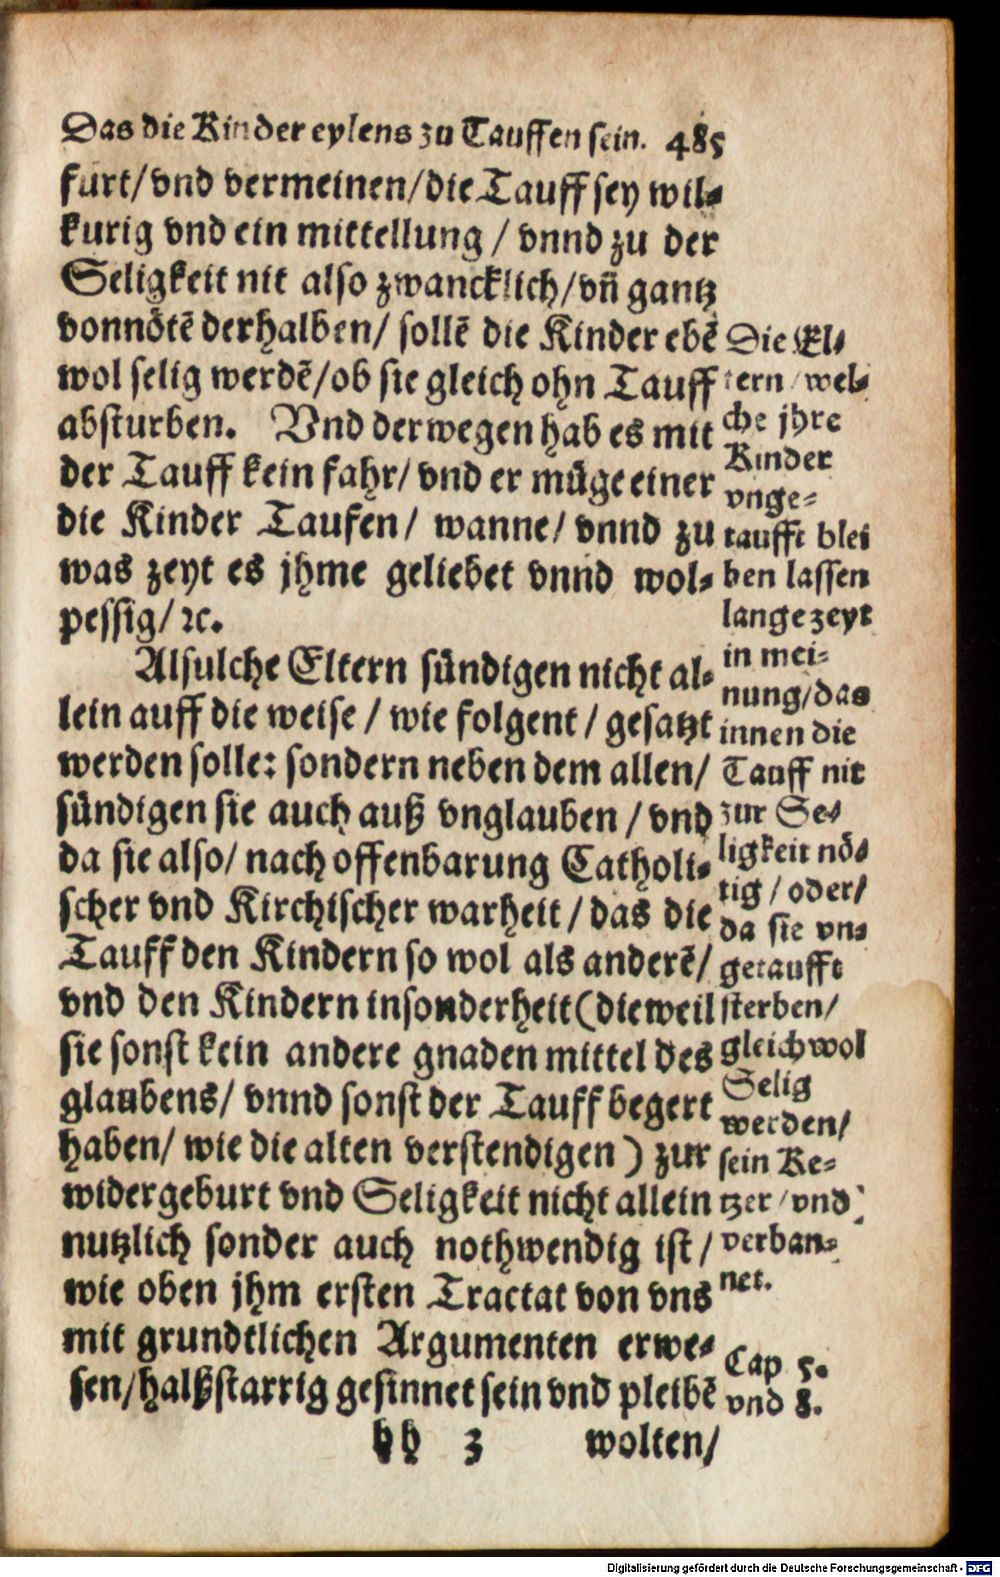 Das die Kinder eylens zu Tauffen sein. 485
furt/ vnd vermeinen/ die Tauff sey wil⸗
kurig vnd ein mittellung / vnnd zu der
Seligkeit nit also zwancklich/ vn̄ gantz
vonnötē derhalben/ sollē die Kinder ebē
wol selig werdē/ ob sie gleich ohn Tauff
absturben. Vnd derwegen hab es mit
der Tauff kein fahr/ vnd er müge einer
die Kinder Taufen/ wanne/ vnnd zu
was zeyt es jhme geliebet vnnd wol⸗
pessig/ ꝛc.
Alsulche Eltern sündigen nicht al⸗
lein auff die weise / wie folgent / gesatzt
werden solle: sondern neben dem allen/
sündigen sie auch auß vnglauben / vnd
da sie also/ nach offenbarung Catholi⸗
scher vnd Kirchischer warheit / das die
Tauff den Kindern so wol als anderē/
vnd den Kindern insonderheit (dieweil
sie sonst kein andere gnaden mittel des
glaubens/ vnnd sonst der Tauff begert
haben/ wie die alten verstendigen ) zur
widergeburt vnd Seligkeit nicht allein
nutzlich sonder auch nothwendig ist /
wie oben jhm ersten Tractat von vns
mit grundtlichen Argumenten erwe⸗
sen/ halßstarrig gesinnet sein vnd pleibē
hh 3 wolten/
Die El⸗
tern / wel⸗
che jhre
Kinder
vnge⸗
taufft blei
ben lassen
lange zeyt
in mei⸗
nung/ das
innen die
Tauff nit
zur Se⸗
ligkeit nö⸗
tig / oder/
da sie vn⸗
getaufft
sterben/
gleichwol
Selig
werden/
sein Ke⸗
tzer / vnd
verban⸗
net.
Cap 5.
vnd 8.
Digitalisierung gefördert durch die Deutsche Forschungsgemeinschaft - DFG